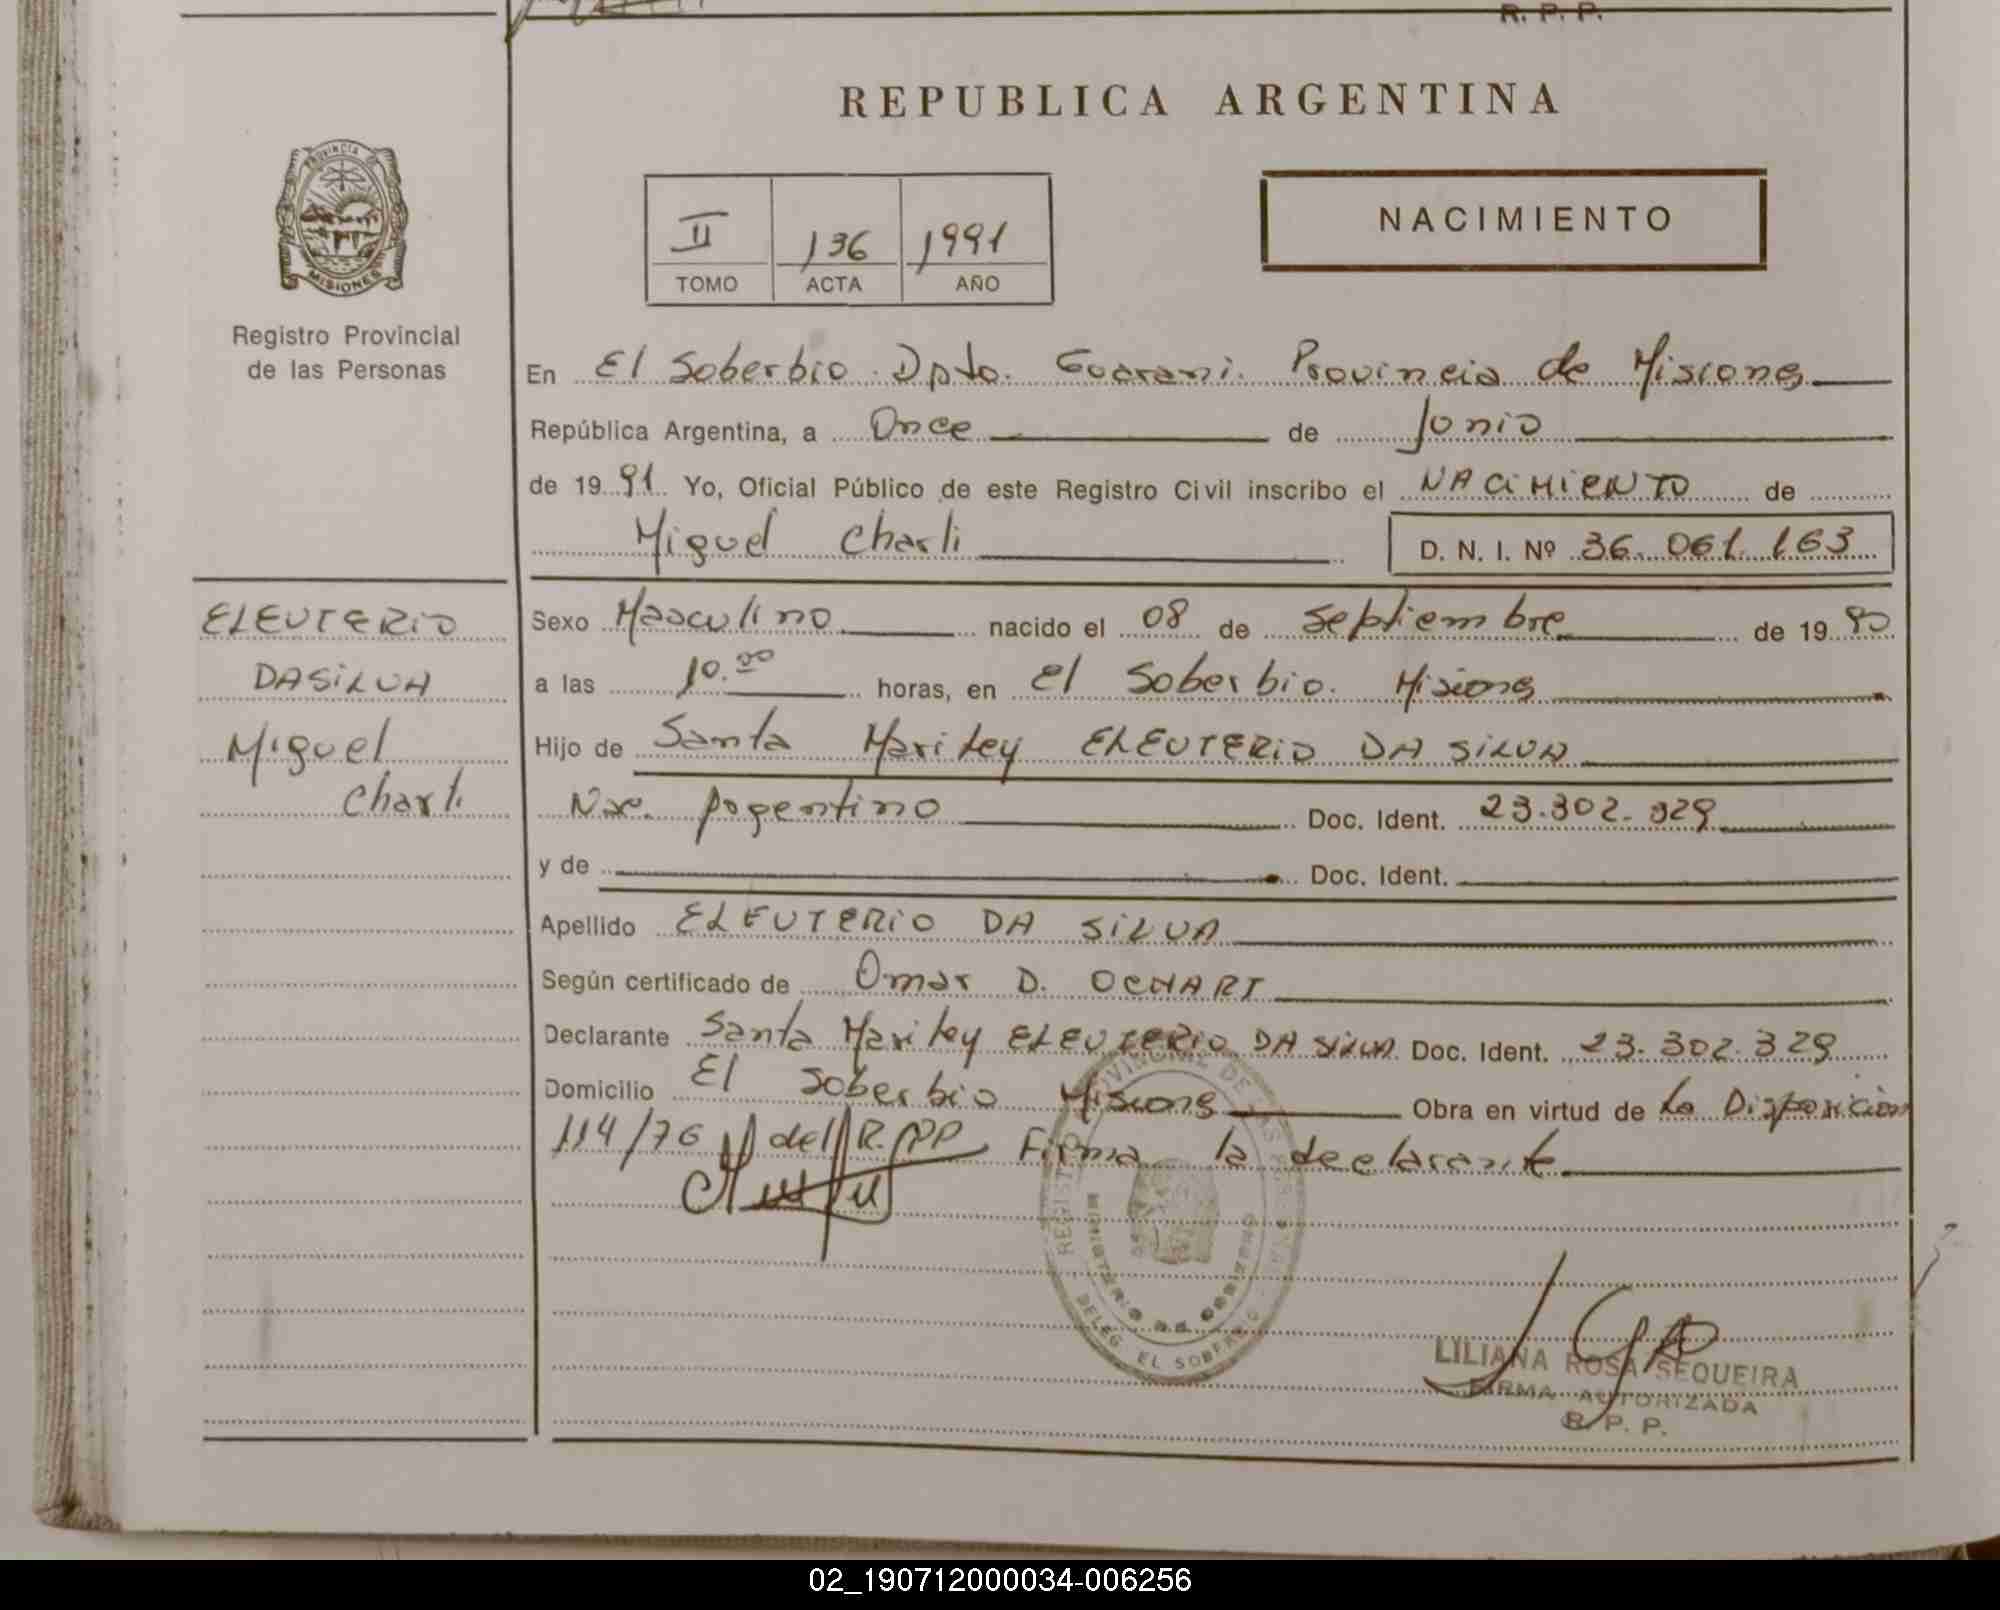 R. P. P.
REPUBLICA ARGENTINA
PROVINCIA DE
MISIONES
Registro Provincial
de las Personas
II 136 1991
TOMO ACTA AÑO
NACIMIENTO
En El Soberbio. Dpto. Guarani. Provincia de Misiones
República Argentina, a Once de Junio
de 1991 Yo, Oficial Público de este Registro Civil inscribo el NACIMIENTO de
Miguel Charli D. N. I. Nº 36.061.163
ELEUTERIO
DA SILVA
Miguel
Charli
Sexo Masculino nacido el 08 de Septiembre de 1990
a las 10.00 horas, en El Soberbio. Misiones
Hijo de Santa Mariley ELEUTERIO DA SILVA
Nac. Argentino Doc. Ident. 23.302.329
y de Doc. Ident.
Apellido ELEUTERIO DA SILVA
Según certificado de Omar D. OCHART
Declarante Santa Mariley ELEUTERIO DA SILVA Doc. Ident. 23.302.329
Domicilio El Soberbio Misiones Obra en virtud de La Disposicion
114/76 del R.PP Firma la declarante
REGISTRO PROVINCIAL DE LAS PERSONAS
MINISTERIO DE GOBIERNO
DELEG. EL SOBERBIO
LILIANA ROSA SEQUEIRA
FIRMA AUTORIZADA
R. P. P.
02_190712000034-006256